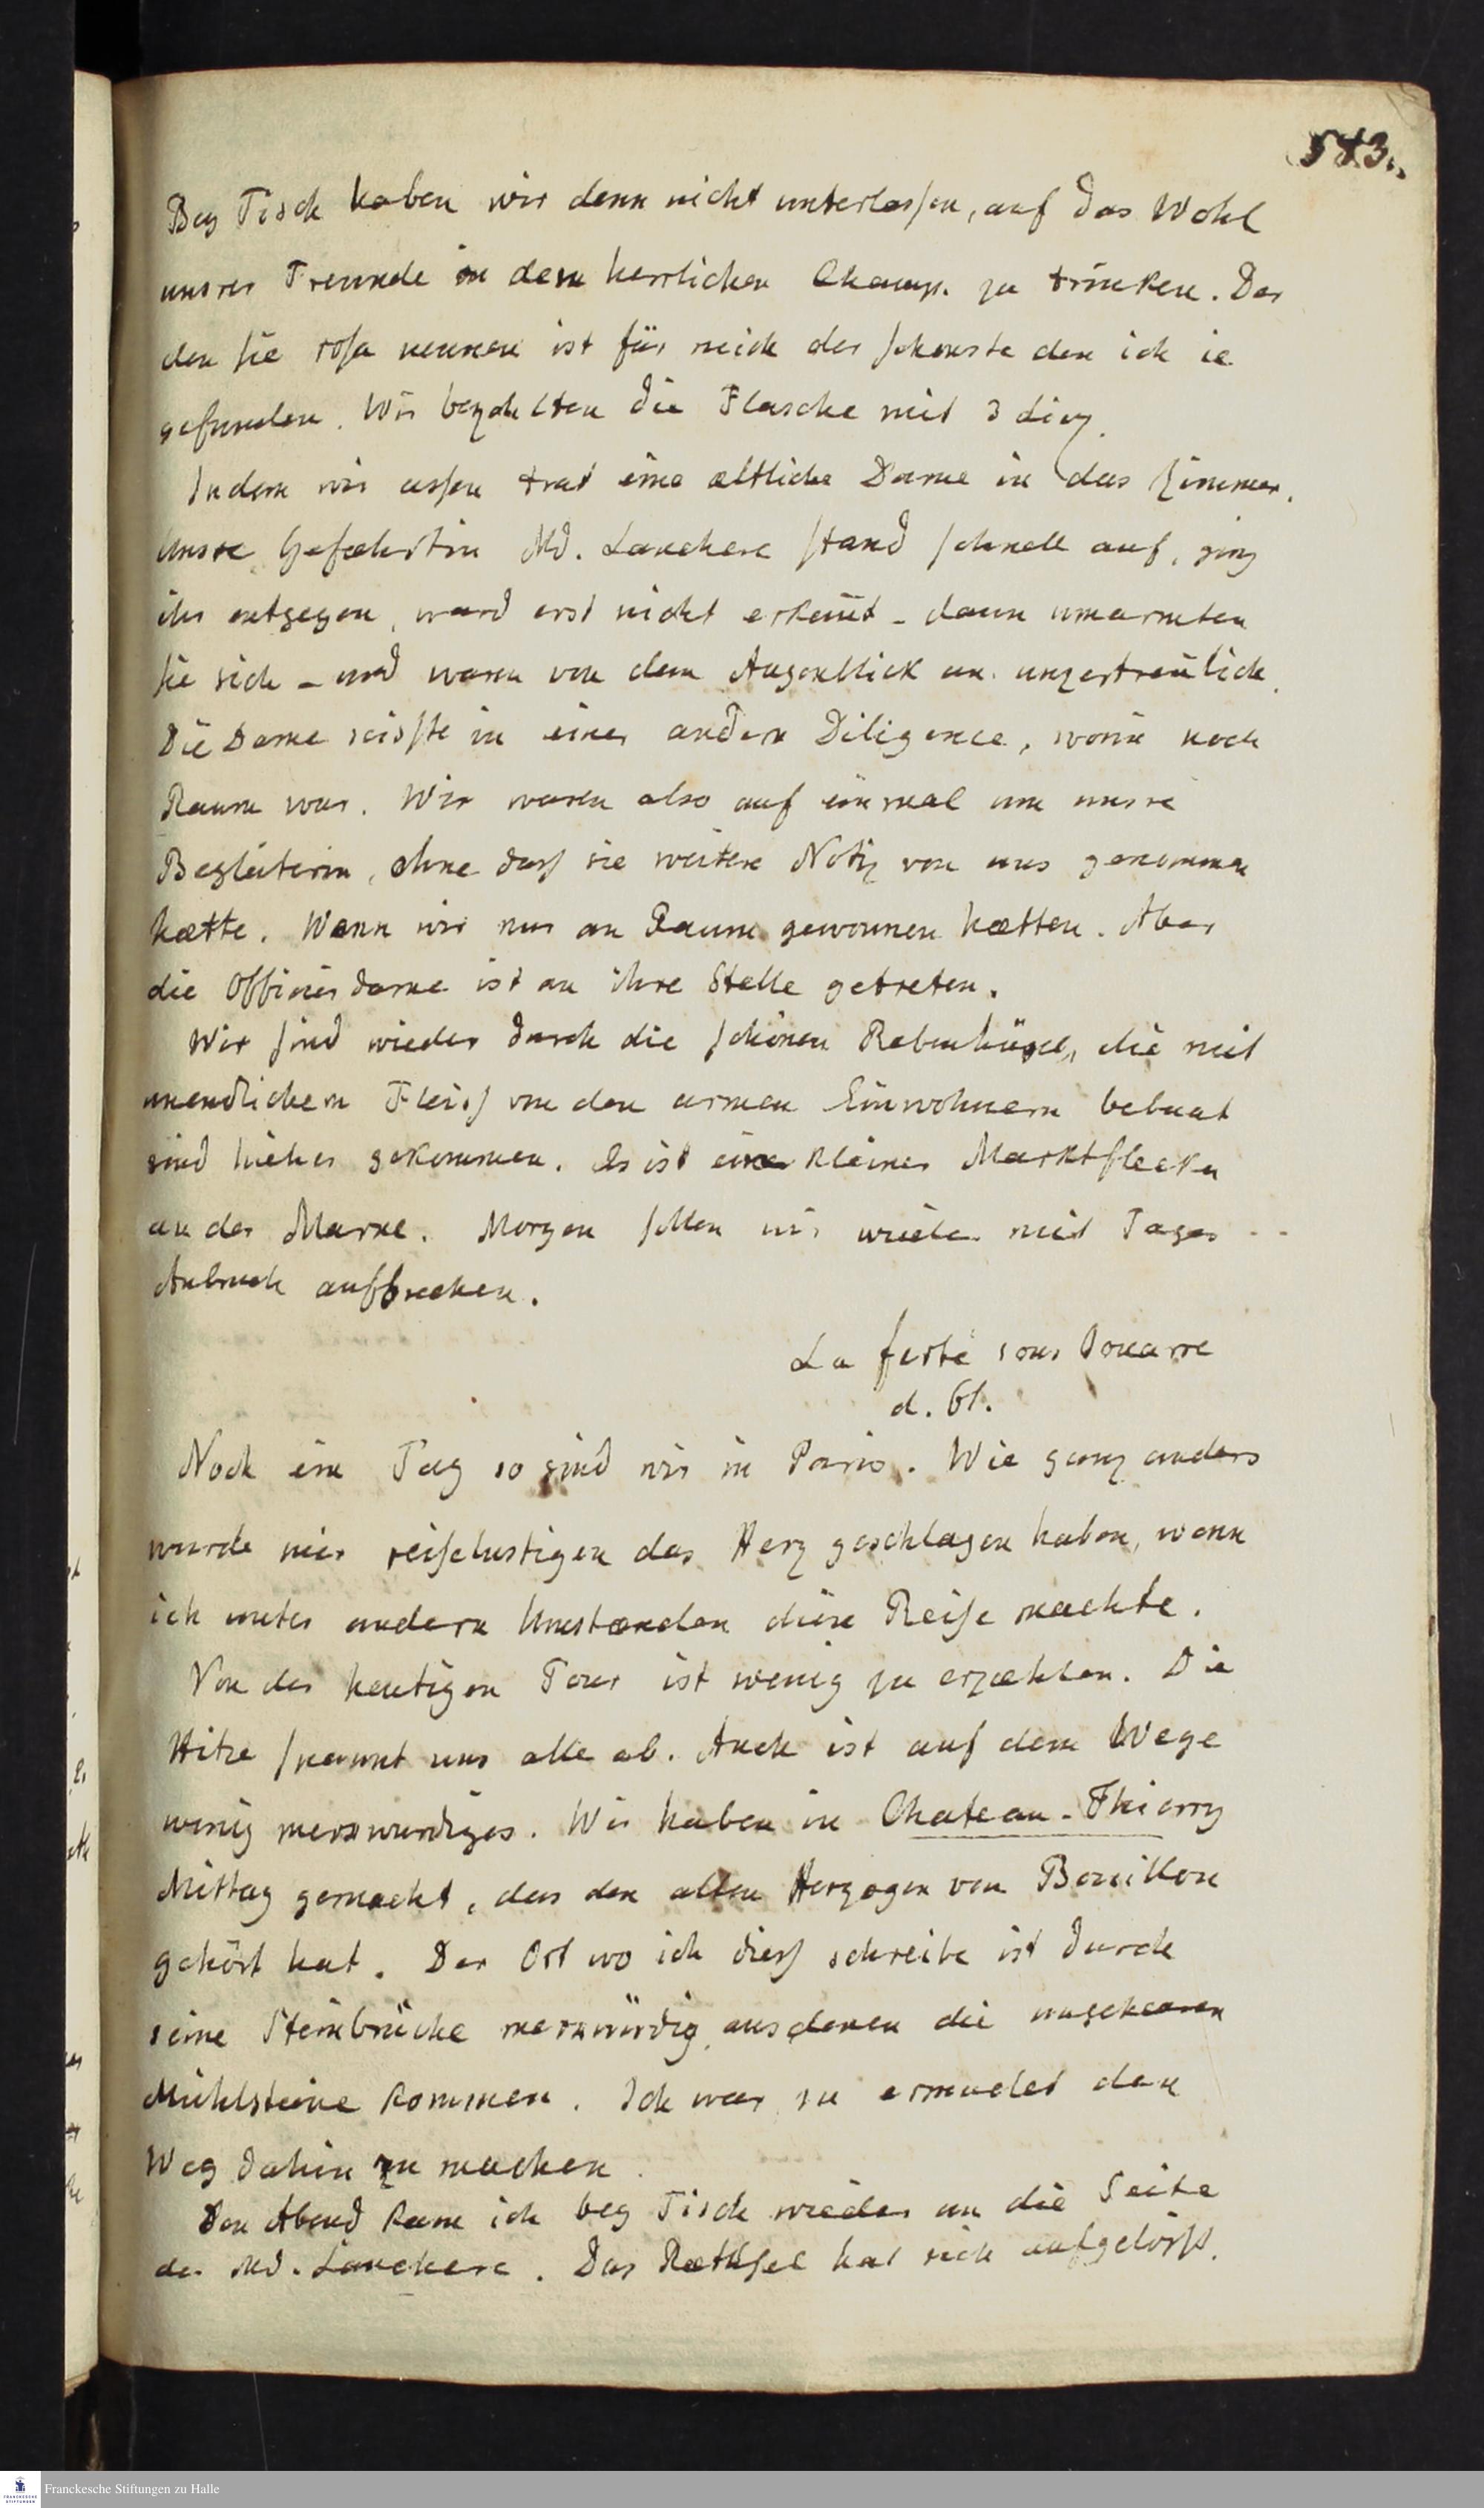 543.
Bey Tisch haben wir denn nicht unterlassen, auf das Wohl
unsrer Freunde in dem herrlichen Champ. zu trinken. Der
den sie rosa nennen ist für mich der schönste den ich ie
gefunden. Wir bezahlten die Flasche mit 3 Livr.
Indem wir assen trat eine æltliche Dame in das Zimmer.
Unsre Gefæhrtin Md. Lanchere stand schnell auf, ging
ihr entgegen, ward erst nicht erkeñt – dann umarmten
sie sich – und waren von dem Augenblick an unzertreñlich.
Die Dame reisste in einer andern Diligence, woriñ noch
Raum war. Wir waren also auf einmal um unsre
Begleiterin, ohne dass sie weitere Notiz von uns genommen
hætte. Wenn wir nur an Raum gewonnen hætten. Aber
die Officierdame ist an ihre Stelle getreten.
Wir sind wieder durch die schönen Rebenhügel, die mit
unendlichem Fleiss von den armen Einwohnern bebaut
sind hieher gekommen. Es ist ein kleiner Marktflecken
an der Marne. Morgen sollen wir wieder mit Tages
Anbruch aufbrechen.
La ferté sous Jouarre
d. 6t.
Noch ein Tag so sind wir in Paris. Wie ganz anders
wurde mir reiselustigen das Herz geschlagen haben, wenn
ich unter andern Umstænden diese Reise machte.
Von der heutigen Tour ist wenig zu erzæhlen. Die
Hitze spannt uns alle ab. Auch ist auf dem Wege
wenig merkwurdiges. Wir haben in Chateau-Thierry
Mittag gemacht, das den alten Herzogen von Bouillon
gehört hat. Der Ort wo ich diess schreibe ist durch
seine Steinbrüche merkwürdig, aus denen die ungeheuren
Mühlsteine kommen. Ich war zu ermudet den
Weg dahin zu machen.
Den Abend kam ich bey Tisch wieder an die Seite
der Md. Lanchere. Das Ræthsel hat sich aufgelösst.
Franckesche Stiftungen zu Halle